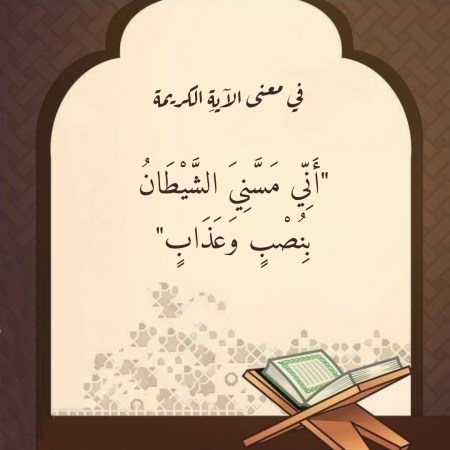 في معنى الآيةِ الكريمة
"أَنِّي مَسَّنِيَ الشَّيْطَانُ
بِنُصْبٍ وَعَذَابٍ"